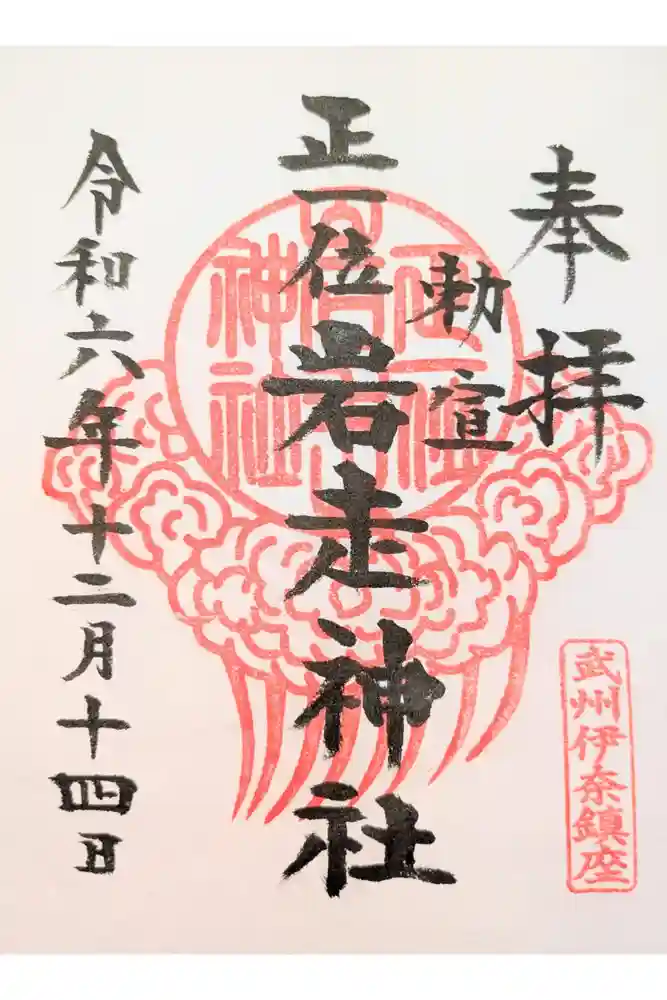 奉拝
勅宣
正一位岩走神社
令和六年十二月十四日
武州伊奈鎮座
正一位岩走神社